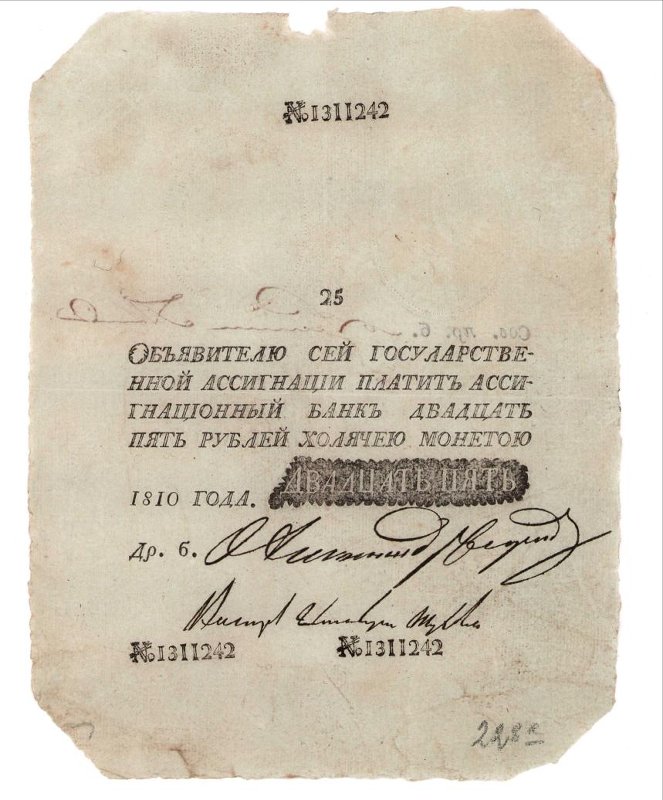 №1311242
25
Сов. пр. б.
ОБЪЯВИТЕЛЮ СЕЙ ГОСУЛАРСТВЕ-
ННОЙ АССИГНАЦІИ ПЛАТИТЪ АССИ-
ГНАЦІОННЫЙ БАНКЪ ДВАДЦАТЬ
ПЯТЬ РУБЛЕЙ ХОЛЯЧЕЮ МОНЕТОЮ
1810 ГОДА. ДВАДЦАТЬ ПЯТЬ
Др. б.
№1311242 №1311242